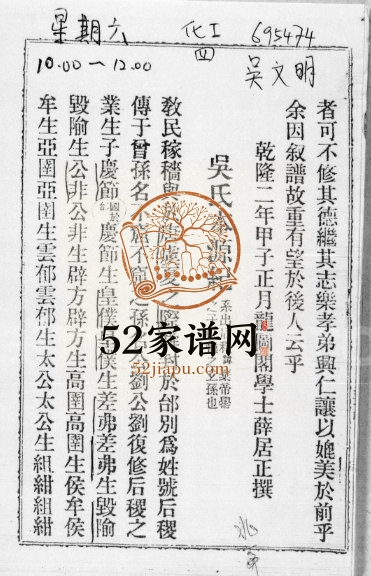 星期六
10.00～12.00
化工
四
695474
吳文明
者可不修其德繼其志樂孝弟興仁讓以媲美於前乎
余因叙譜故重有望於後人云乎
乾隆二年甲子正月龍圖閣學士薛居正撰
吳氏 源
敎民稼穡 於邰別爲姓號后稷
傳于曾孫名 孫 劉公劉復修后稷之
業生子慶節 慶節生皇僕 僕生差弗差弗生毀隃
毀隃生公非公非生辟方辟方生高圉高圉生侯牟侯
牟生亞圉亞圉生雲郁雲郁生太公太公生組紺組紺
52家谱网
52jiapu.com